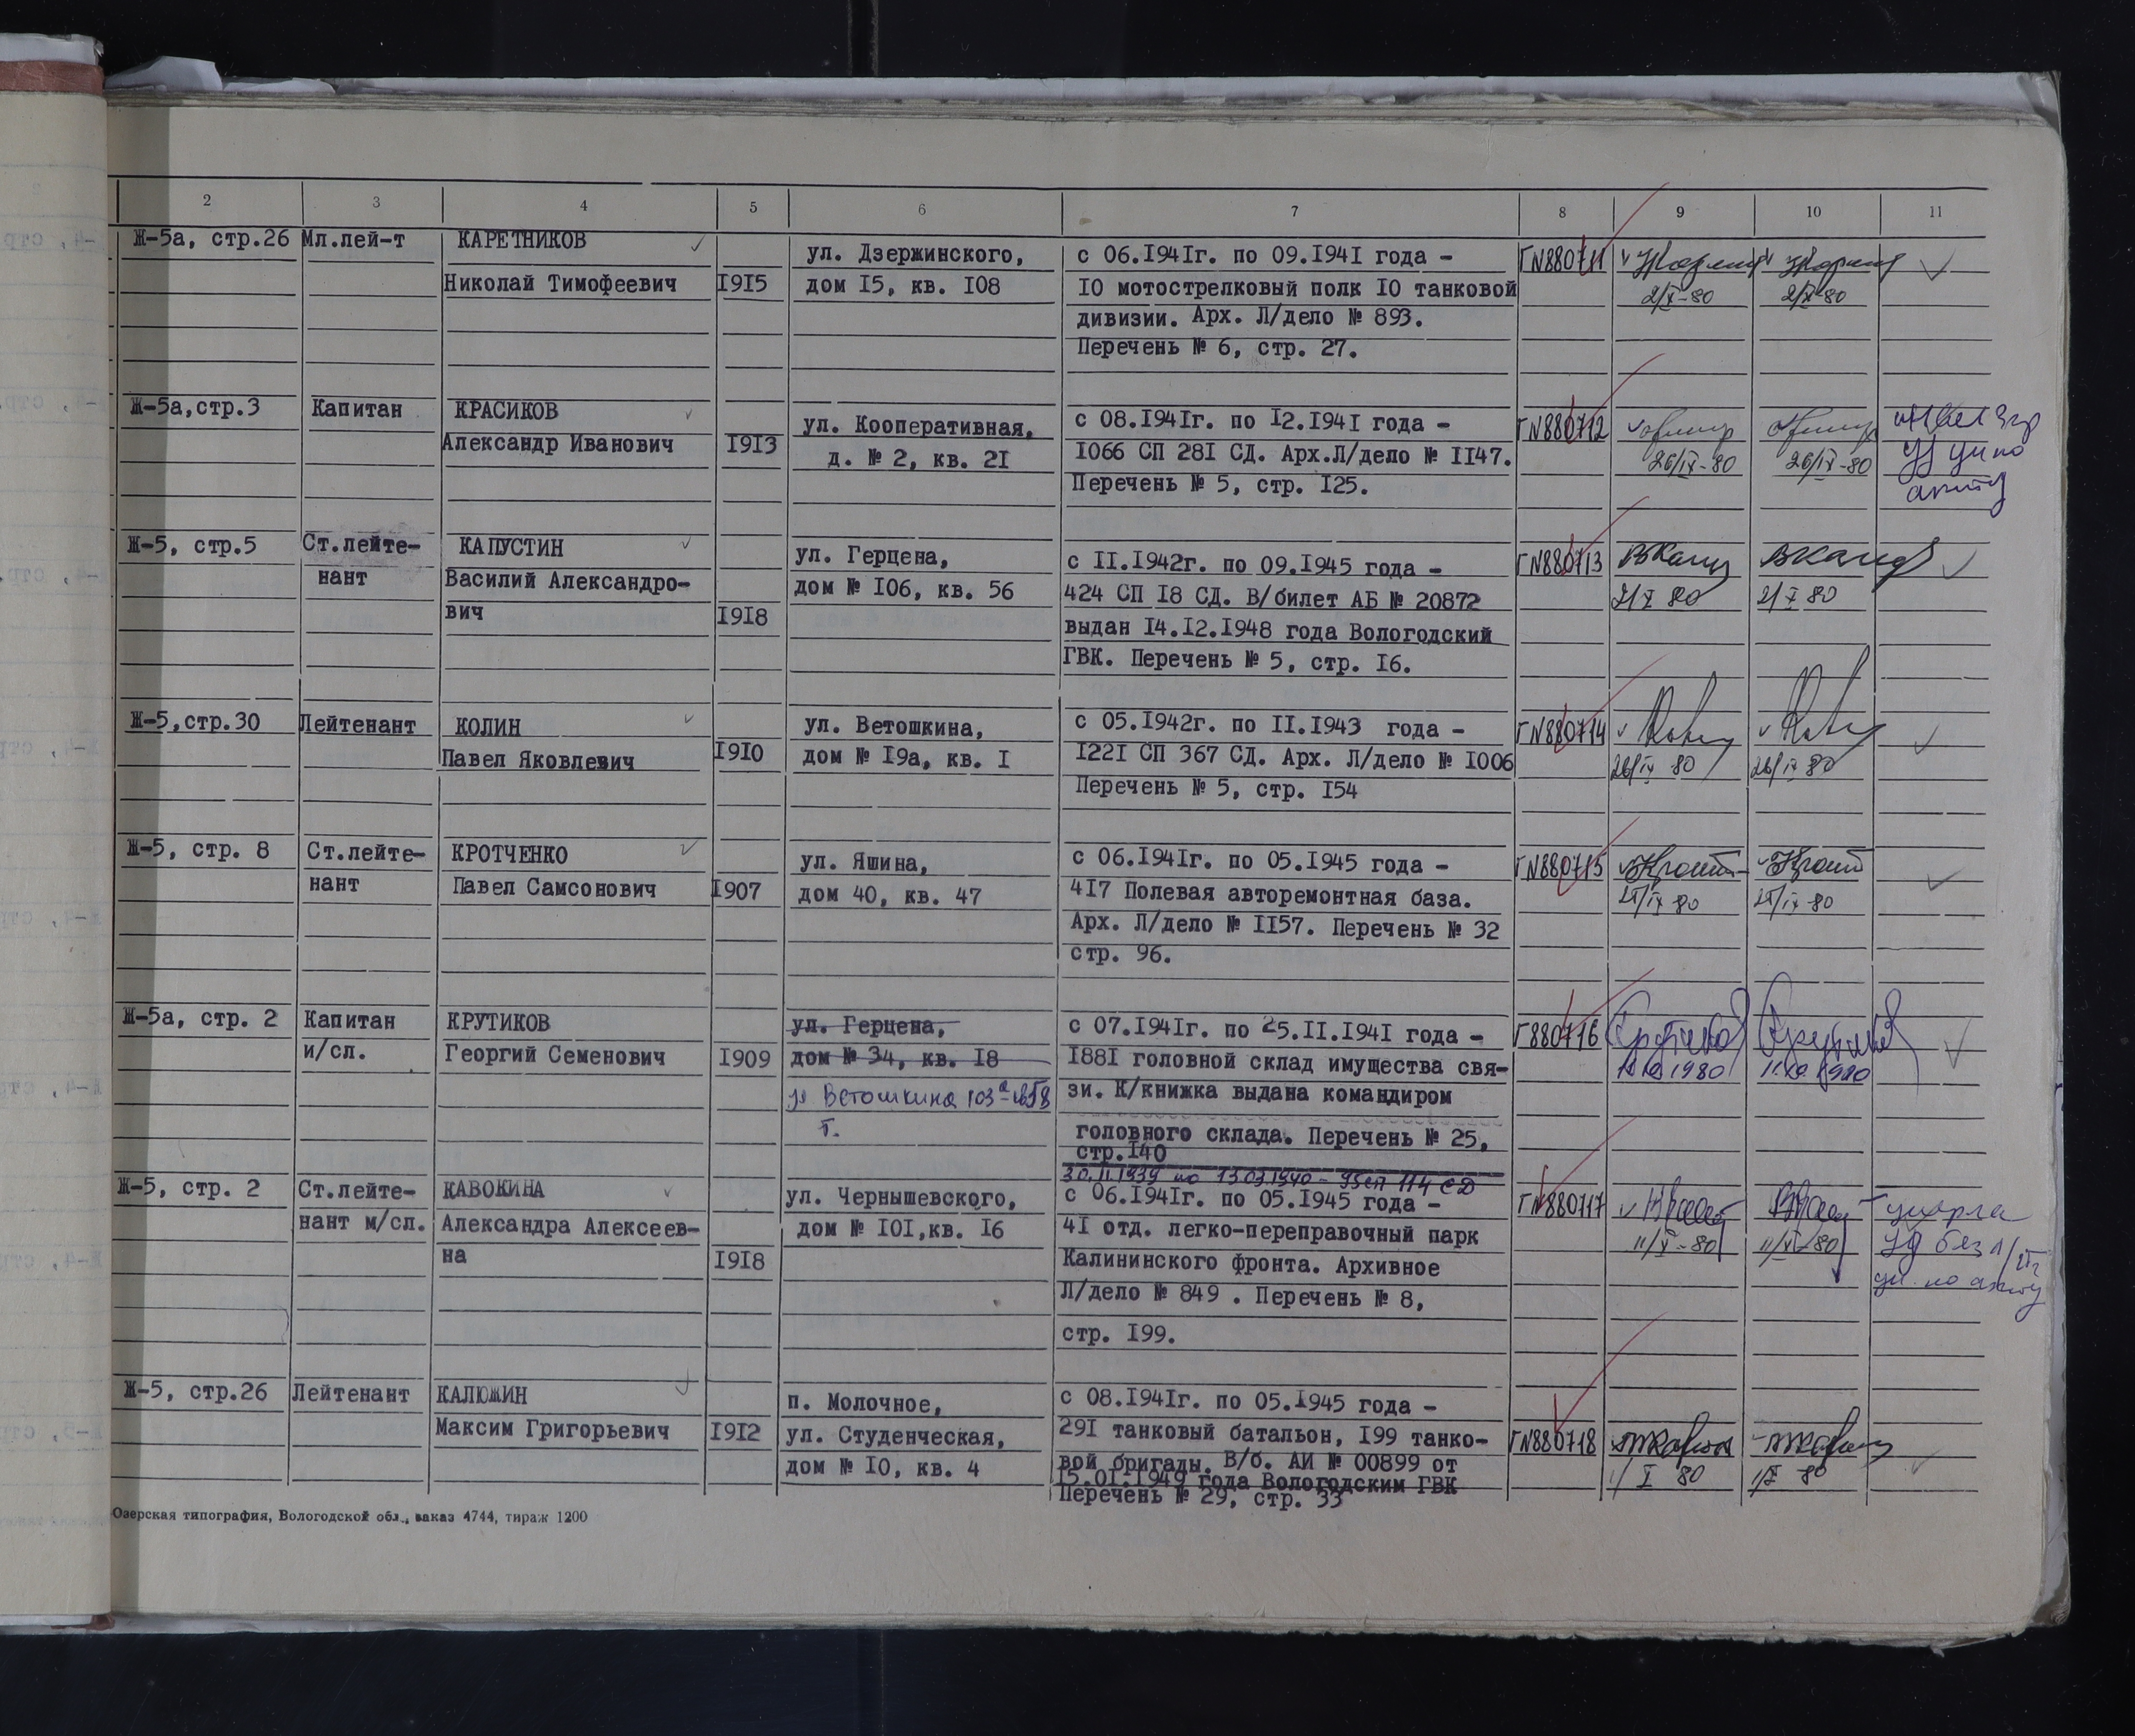 2 3 4 5 6 7 8 9 10 11
Ж-5а, стр.26 Мл.лей-т КАРЕТНИКОВ
Николай Тимофеевич I9I5
ул. Дзержинского,
дом I5, кв. I08
с 06.I94Iг. по 09.I94I года -
I0 мотострелковый полк I0 танковой
дивизии. Арх. Л/дело № 893.
Перечень № 6, стр. 27.
Г№880711
2/X-80 2/X-80
Ж-5а,стр.3 Капитан КРАСИКОВ
Александр Иванович I9I3
ул. Кооперативная,
д. № 2, кв. 2I
с 08.I94Iг. по I2.I94I года -
I066 СП 28I СД. Арх.Л/дело № II47.
Перечень № 5, стр. I25.
Г№880712
26/IX-80 26/IX-80
Ж-5, стр.5 Ст.лейте-
нант
КАПУСТИН
Василий Александро-
вич I9I8
ул. Герцена,
дом № I06, кв. 56
с II.I942г. по 09.I945 года -
424 СП I8 СД. В/билет АБ № 20872
выдан I4.I2.I948 года Вологодский
ГВК. Перечень № 5, стр. I6.
Г№880713
2/X 80 2/X 80
Ж-5,стр.30 Лейтенант КОЛИН
Павел Яковлевич I9I0
ул. Ветошкина,
дом № I9а, кв. I
с 05.I942г. по II.I943 года -
I22I СП 367 СД. Арх. Л/дело № I006
Перечень № 5, стр. I54
Г№880714
26/IX 80 26/IX 80
Ж-5, стр. 8 Ст.лейте-
нант
КРОТЧЕНКО
Павел Самсонович I907
ул. Яшина,
дом 40, кв. 47
с 06.I94Iг. по 05.I945 года -
4I7 Полевая авторемонтная база.
Арх. Л/дело № II57. Перечень № 32
стр. 96.
Г№880715
Ж-5а, стр. 2 Капитан
и/сл.
КРУТИКОВ
Георгий Семенович I909
ул. Герцена,
дом № 34, кв. I8
Ветошкина 103а
с 07.I94Iг. по 25.II.I94I года -
I88I головной склад имущества свя-
зи. К/книжка выдана командиром
головного склада. Перечень № 25,
стр.I40
Г880716
1980 1980
Ж-5, стр. 2 Ст.лейте-
нант м/сл.
КАВОКИНА
Александра Алексеев-
на I9I8
ул. Чернышевского,
дом № I0I,кв. I6
30.11.1939 по 13.03.1940 - 95сп 114 СД
с 06.I94Iг. по 05.I945 года -
4I отд. легко-переправочный парк
Калининского фронта. Архивное
Л/дело № 849 . Перечень № 8,
стр. I99.
Г№880717
11/X-80 11/X-80
Ж-5, стр.26 Лейтенант КАЛЮЖИН
Максим Григорьевич I9I2
п. Молочное,
ул. Студенческая,
дом № I0, кв. 4
с 08.I94Iг. по 05.I945 года -
29I танковый батальон, I99 танко-
вой бригады. В/б. АИ № 00899 от
I5.0I.I949 года Вологодским ГВК
Перечень № 29, стр. 33
Г№880718
Озерская типография, Вологодской обл., заказ 4744, тираж 1200